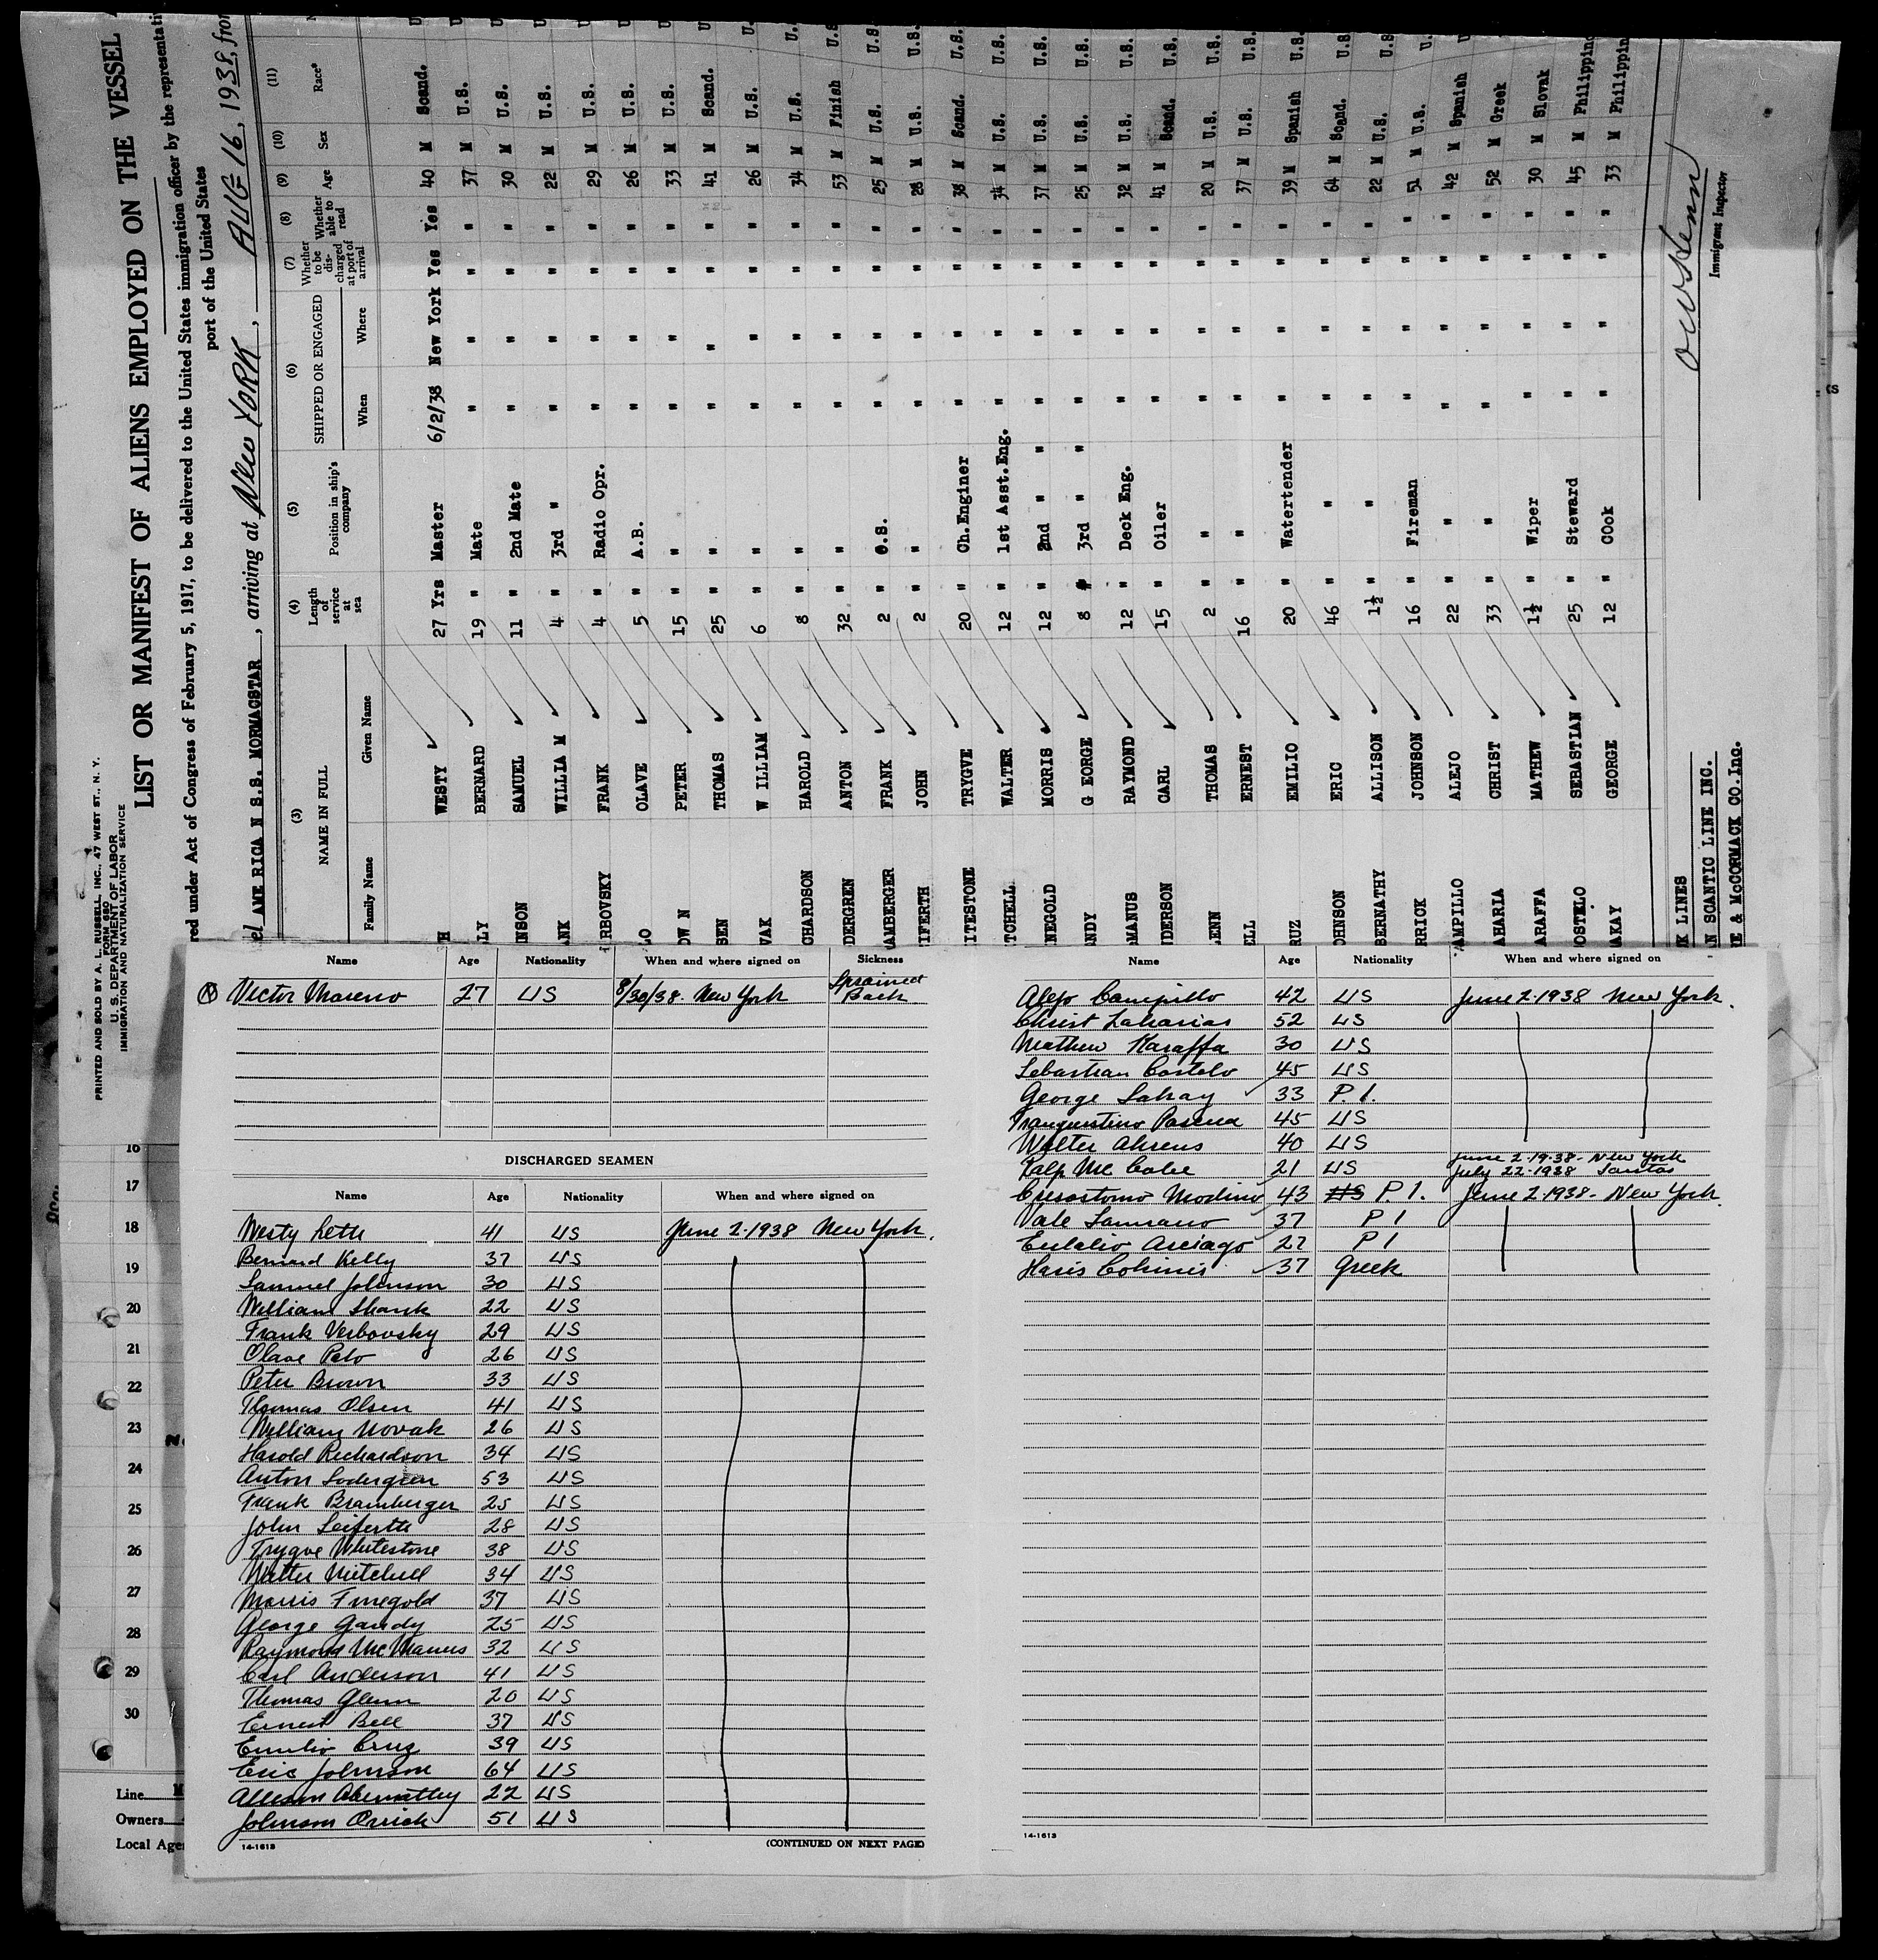 PRINTED AND SOLD BY A. L. RUSSELL, INC., 47 WEST ST., N. Y.
FORM 680
U. S. DEPARTMENT OF LABOR
IMMIGRATION AND NATURALIZATION SERVICE
LIST OR MANIFEST OF ALIENS EMPLOYED ON THE VESSEL
red under Act of Congress of February 5, 1917, to be delivered to the United States immigration officer by the representati
port of the United States
el AME RICA N S.S. MORMACSTAR, arriving at New YORK, AUG 16, 1938, from
(3) (4) (5) (6) (7) (8) (9) (10) (11)
NAME IN FULL Length of service at sea Position in ship's company SHIPPED OR ENGAGED Whether to be discharged at port of arrival Whether able to read Age Sex Race*
Family Name Given Name When Where
H WESTY 27 Yrs Master 6/2/38 New York Yes Yes 40 M Scand. U
LY BERNARD 19 " Mate " " " " 37 M U.S. U
NSON SAMUEL 11 " 2nd Mate " " " " 30 M U.S. U
NK WILLIA M 4 " 3rd " " " " " 22 M U.S. U
RBOVSKY FRANK 4 " Radio Opr. " " " " 29 M U.S. U
LO OLAVE 5 " A.B. " " " " 26 M U.S. U
OW N PETER 15 " " " " " " 33 M U.S. U
SEN THOMAS 25 " " " " " " 41 M Scand. U
VAK W ILLIAM 6 " " " " " " 26 M U.S. U.
CHARDSON HAROLD 8 " " " " " " 34 M U.S. U.
DERGREN ANTON 32 " " " " " " 53 M Finish U.S
AMBERGER FRANK 2 " O.S. " " " " 25 M U.S. U.S.
IFERTH JOHN 2 " " " " " " 28 M U.S. U.S.
ITESTONE TRYGVE 20 " Ch.Enginer " " " " 38 M Scand. U.S.
TCHELL WALTER 12 " 1st Asst.Eng. " " " " 34 M U.S. U.S.
NEGOLD MORRIS 12 " 2nd " " " " " " 37 M U.S. U.S.
NDY G EORGE 8 " 3rd " " " " " " 25 M U.S. U.S.
MANUS RAYMOND 12 " Deck Eng. " " " " 32 M U.S. U.S.
DERSON CARL 15 " Oiler " " " " 41 M Scand. U.S.
LENN THOMAS 2 " " " " " " 20 M U.S. U.S.
ELL ERNEST 16 " " " " " " 37 M U.S. U.S.
RUZ EMILIO 20 " Watertender " " " " 39 M Spanish U.S.
OHNSON ERIC 46 " " " " " " 64 M Scand. U.S
BERNATHY ALLISON 1½ " " " " " " 22 M U.S. U.S.
RRICK JOHNSON 16 " Fireman " " " " 51 M U.S. U.
AMPILLO ALEJO 22 " " " " " " 42 M Spanish U
AHARIA CHRIST 33 " " " " " " 52 M Greek
ARAFFA MATHEW 1½ " Wiper " " " " 30 M Slovak
OSTELO SEBASTIAN 25 " Steward " " " " 45 M Philippin
AKAY GEORGE 12 " Cook " " " " 33 M Philippin
K LINES
N SCANTIC LINE INC.
E & McCORMACK CO.Inc.
Immigrant Inspector
Name Age Nationality When and where signed on Sickness
Victor Moreno 27 US 8/30/38. New York Sprained Back
DISCHARGED SEAMEN
Name Age Nationality When and where signed on
Westy Leth 41 US June 2-1938 New York.
Bernard Kelly 37 US
Samuel Johnson 30 US
William Shank 22 US
Frank Verbovsky 29 US
Olave Pelo 26 US
Peter Brown 33 US
Thomas Olsen 41 US
William Novak 26 US
Harold Richardson 34 US
Anton Sodergren 53 US
Frank Bramberger 25 US
John Seiferth 28 US
Trygve Whitestone 38 US
Walter Mitchell 34 US
Morris Finegold 37 US
George Gandy 25 US
Raymond McManus 32 US
Carl Anderson 41 US
Thomas Glenn 20 US
Ernest Bell 37 US
Emilio Cruz 39 US
Eric Johnson 64 US
Allison Abernathy 22 US
Johnson Orrick 51 US
14-1613 (CONTINUED ON NEXT PAGE)
Name Age Nationality When and where signed on
Alejo Campillo 42 US June 2-1938 New York.
Christ Zaharias 52 US
Mathew Karaffa 30 US
Sebastian Costelo 45 US
George Sakay 33 P.I.
45 US
Walter Ahrens 40 US
Ralp McCabe 21 US June 2-19-38- New York July 22-1938 Santos
Crisostomo Modino 43 US P.I. June 2-1938- New York.
37 P I
Eulalio Arciago 27 P I
Haris 37 Greek
14-1613
16
17
18
19
20
21
22
23
24
25
26
27
28
29
30
Line M
Owners
Local Age